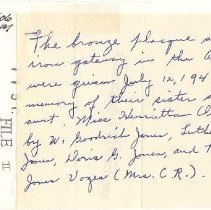 The bronze plaque
iron gateway in the
were given July 12, 194
memory of their sister
aunt. Miss Henrietta
by W. Goodrich Jones,
Jones, Doris G. Jones, and
Jones Voges (Mrs. C.R.).
FILE II